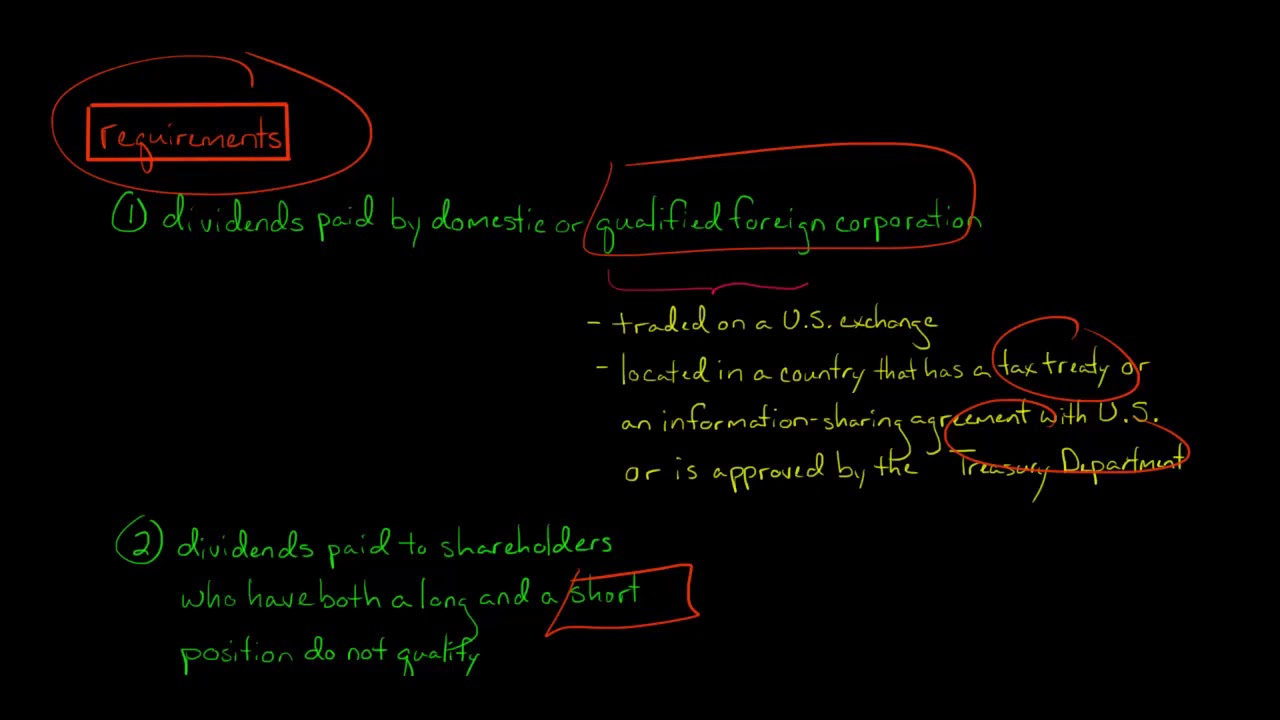 requirements
① dividends paid by domestic or qualified foreign corporation
- traded on a U.S. exchange
- located in a country that has a tax treaty or
an information-sharing agreement with U.S.
or is approved by the Treasury Department
② dividends paid to shareholders
who have both a long and a short
position do not qualify